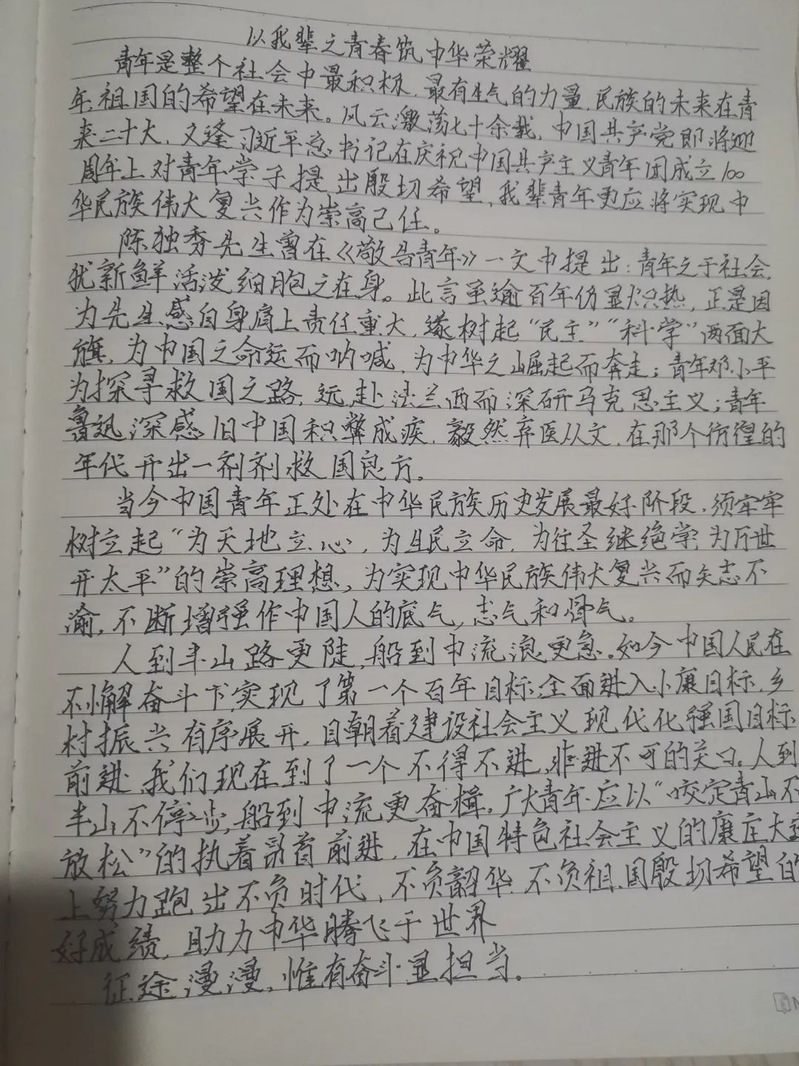 以我辈之青春筑中华荣耀
青年是整个社会中最积极、最有生气的力量,民族的未来在青
年,祖国的希望在未来。风云激荡七十余载,中国共产党即将迎
来二十大,又逢习近平总书记在庆祝中国共产主义青年团成立100
周年上对青年学子提出殷切希望,我辈青年更应将实现中
华民族伟大复兴作为崇高己任。
陈独秀先生曾在《敬告青年》一文中提出:青年之于社会,
犹新鲜活泼细胞之在身。此言虽逾百年仍显灼热,正是因
为先生感自身肩上责任重大,遂树起“民主”“科学”两面大
旗,为中国之命运而呐喊,为中华之崛起而奔走;青年邓小平
为探寻救国之路,远赴法兰西而深研马克思主义;青年
鲁迅深感旧中国积弊成疾,毅然弃医从文,在那个彷徨的
年代开出一剂剂救国良方。
当今中国青年正处在中华民族历史发展最好阶段,须牢牢
树立起“为天地立心,为生民立命,为往圣继绝学,为万世
开太平”的崇高理想,为实现中华民族伟大复兴而矢志不
渝,不断增强作中国人的底气,志气和骨气。
人到半山路更陡,船到中流浪更急。如今中国人民在
不懈奋斗下,实现了第一个百年目标,全面进入小康目标,乡
村振兴有序展开,目朝着建设社会主义现代化强国目标
前进,我们现在到了一个不得不进,非进不可的关口。人到
半山不停步,船到中流更奋楫。广大青年应以“咬定青山不
放松”的执着昂首前进,在中国特色社会主义的康庄大道
上努力跑出不负时代,不负韶华,不负祖国殷切希望的
好成绩,助力中华腾飞于世界
征途漫漫,惟有奋斗显担当。